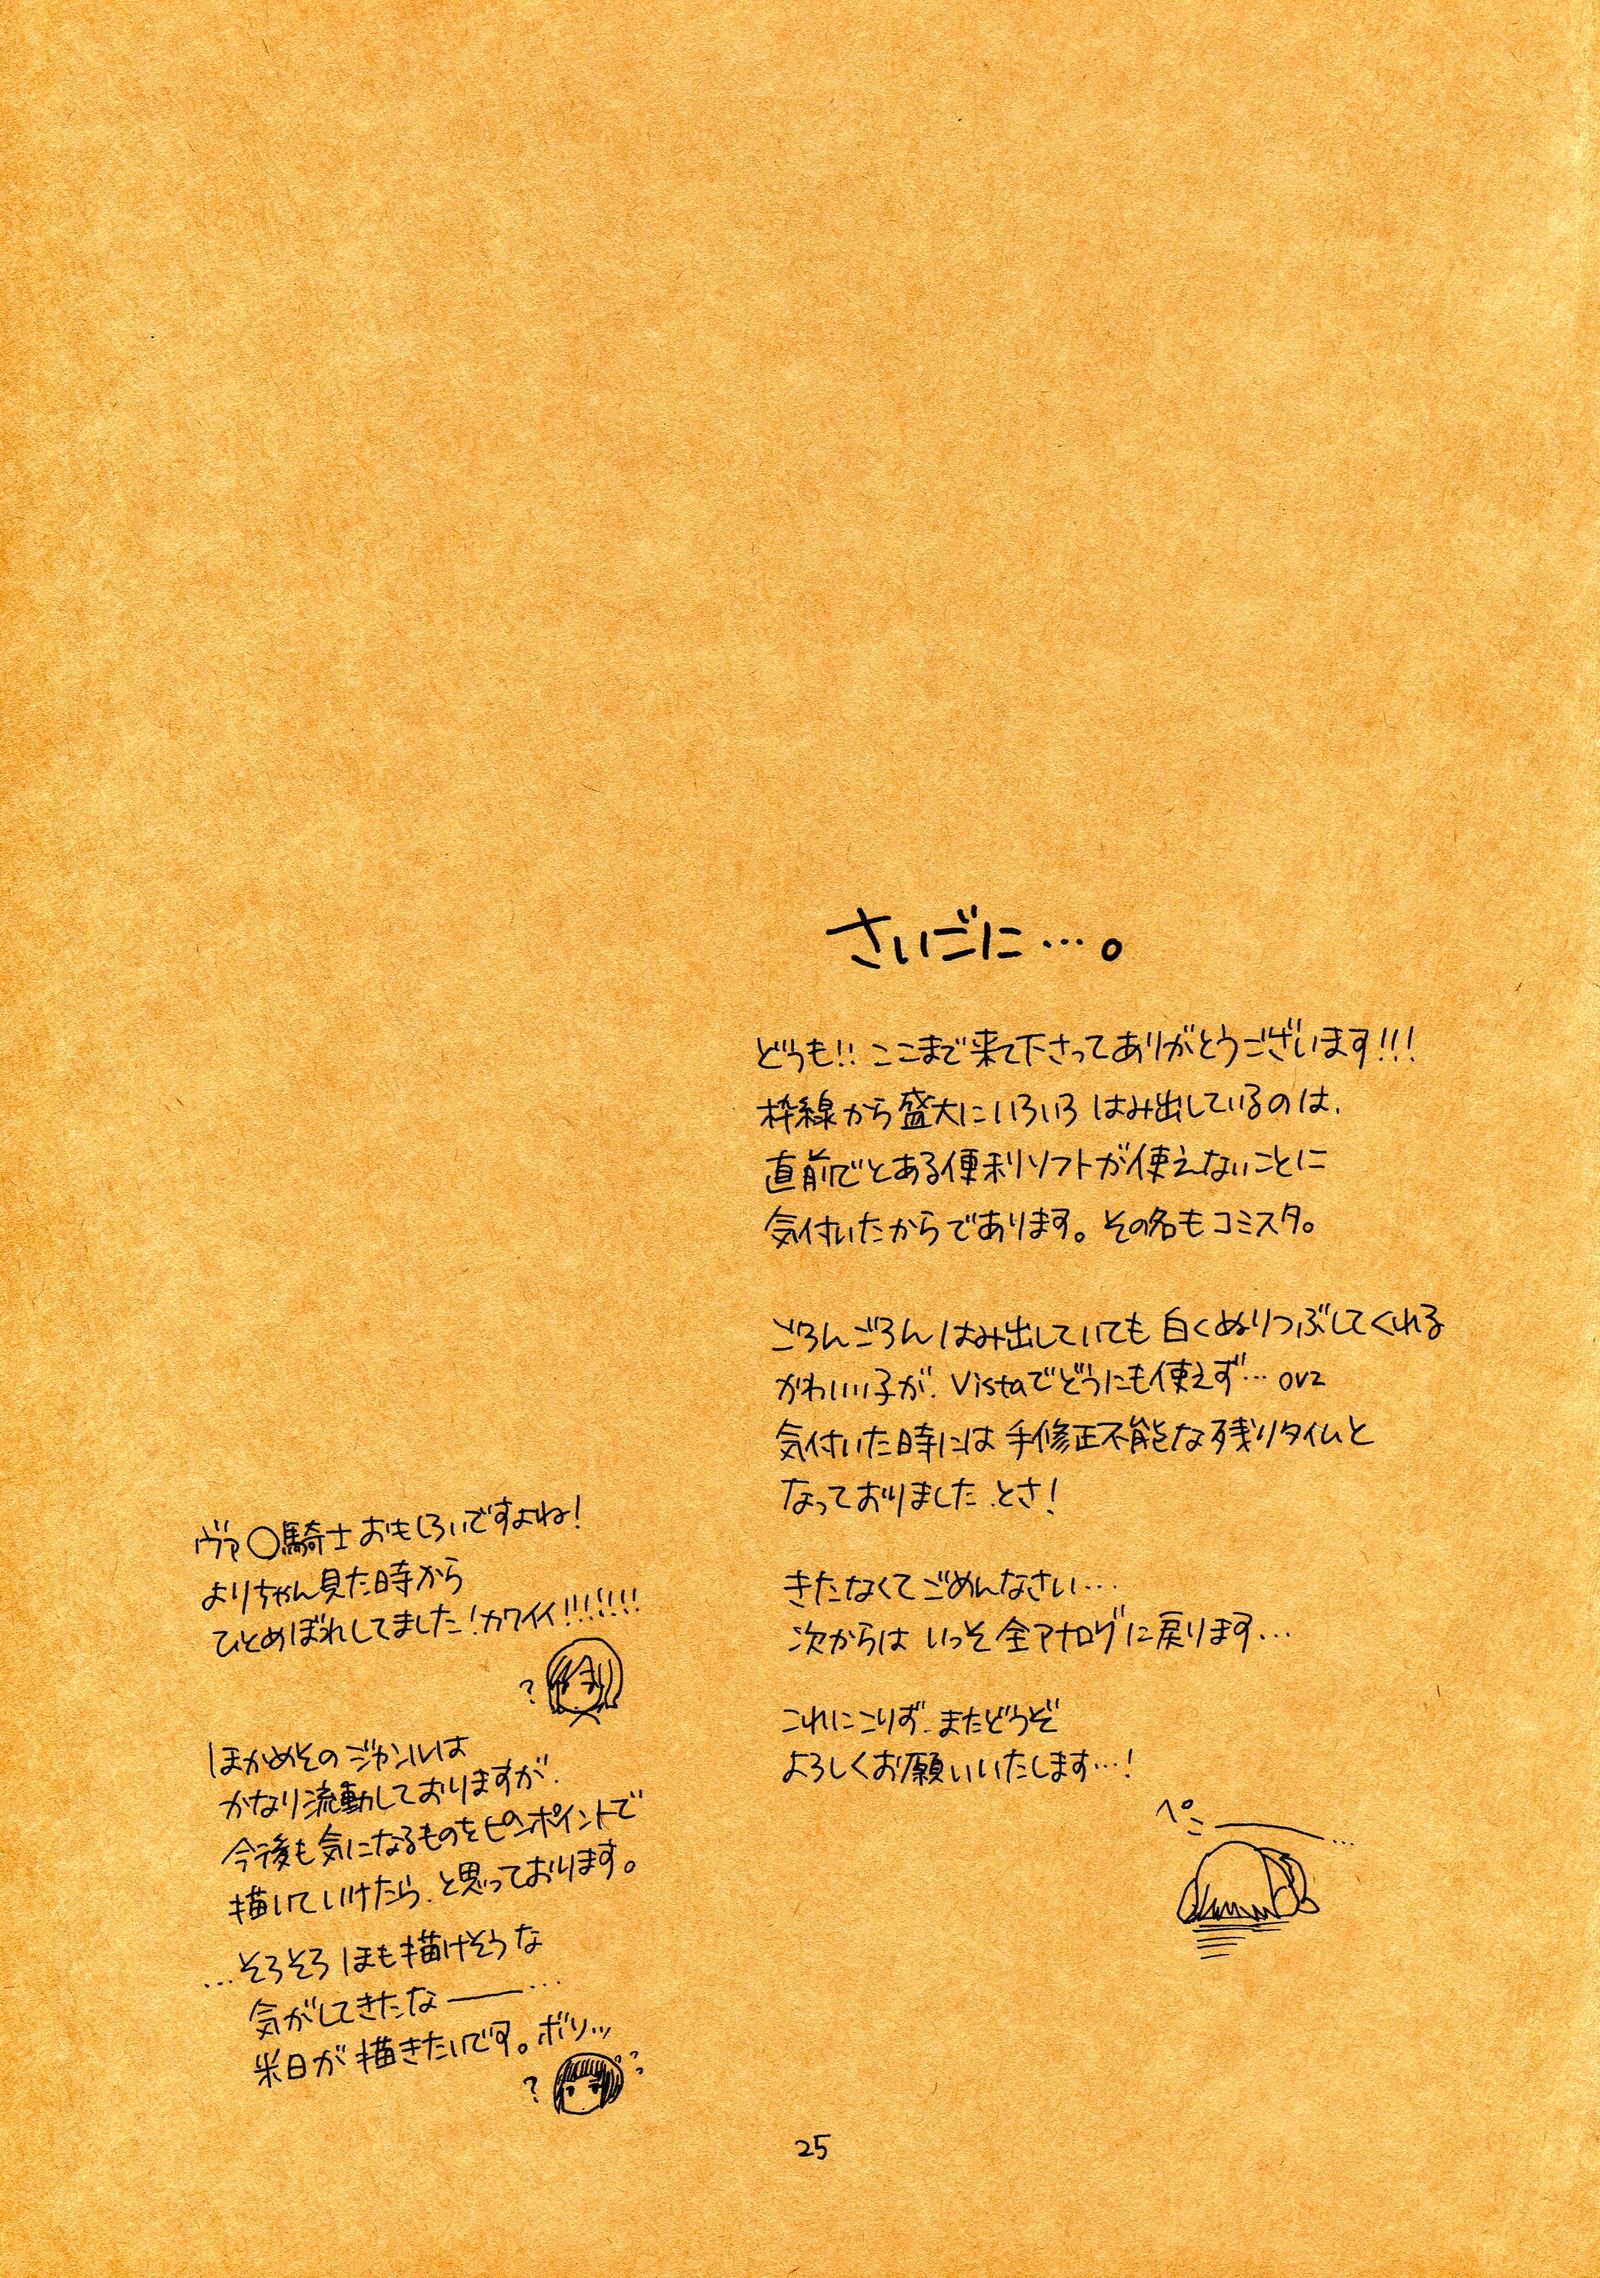 さいごに…。
どうも!! ここまで来て下さってありがとうございます!!!
枠線から盛大にいろいろ はみ出しているのは、
直前でとある便利ソフトが使えないことに
気付いたからであります。その名もコミスタ。
ごろんごろん はみ出していても 白くぬりつぶしてくれる
かわいい子が、Vistaでどうにも使えず… orz
気付いた時には 手修正不能な残りタイムと
なっておりました、とさ!
きたなくてごめんなさい…
次からは いっそ全アナログに戻ります…
これにこりず、またどうぞ
よろしくお願いいたします…!
ペこ―――…
ヴァ○騎士おもしろいですよね!
よりちゃん見た時から
ひとめぼれしてました!カワイイ!!!!!!!
?
ほかめそのジャンルは
かなり流動しておりますが、
今後も気になるものをピンポイントで
描いていけたら、と思っております。
…そろそろ ほも描けそうな
気がしてきたな―――…
米日が描きたいです。ボソッ
? ??
25